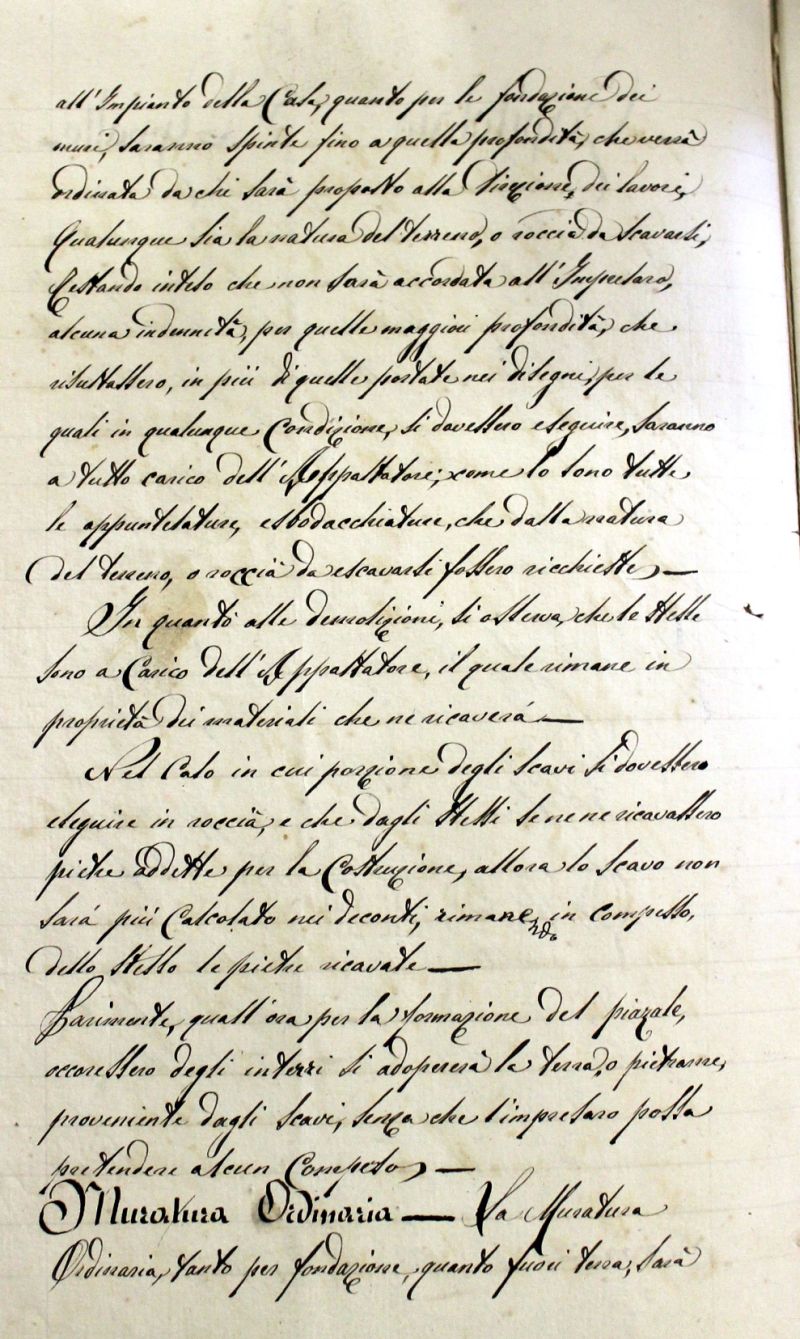 all'Impianto della Casa, quanto per le fondazione dei
muri, saranno spinte fino a quella profondità, che verrà
ordinata da chi sarà proposto alla Direzione, dei lavori,
Qualunque sia la natura del terreno, o roccia da scavarsi,
Restando inteso che non sarà accordata all'Impresaro,
alcuna indennità, per quelle maggiori profondità, che
risultassero, in più di quelle portate nei disegni, per le
quali in qualunque Condizione, si dovessero eseguire, saranno
a tutto carico dell'Appaltatore; come lo sono tutte
le appuntelature, e sbodacchiature, che dalla natura
del terreno, o roccià da escavarsi fossero ricchieste, —
In quantò alle demolizioni, si osserva, che le stesse
sono a Carico dell'Appaltatore, il quale rimane in
proprietà dei materiali che ne ricaverá —
Nel Caso in cui porzione degli scavi si dovessero
eseguire in roccià, e che dagli stessi se ne ne ricavassero
pietre addette per la Costruzione, allora lo scavo non
sará più Calcolato nei deconti, rimanendo in compesso,
dello stesso le pietre ricavate —
Parimente, quall'ora per la formazione del piazale,
occoressero degli interri si adopererà la terra, o pietrame,
proveniente dagli scavi, senza che l'impresaro possa
pretendere alcun Compeso, —
Muratura Ordinaria — La Muratura
Ordinaria, tanto per fondazione, quanto fuori terra, sarà